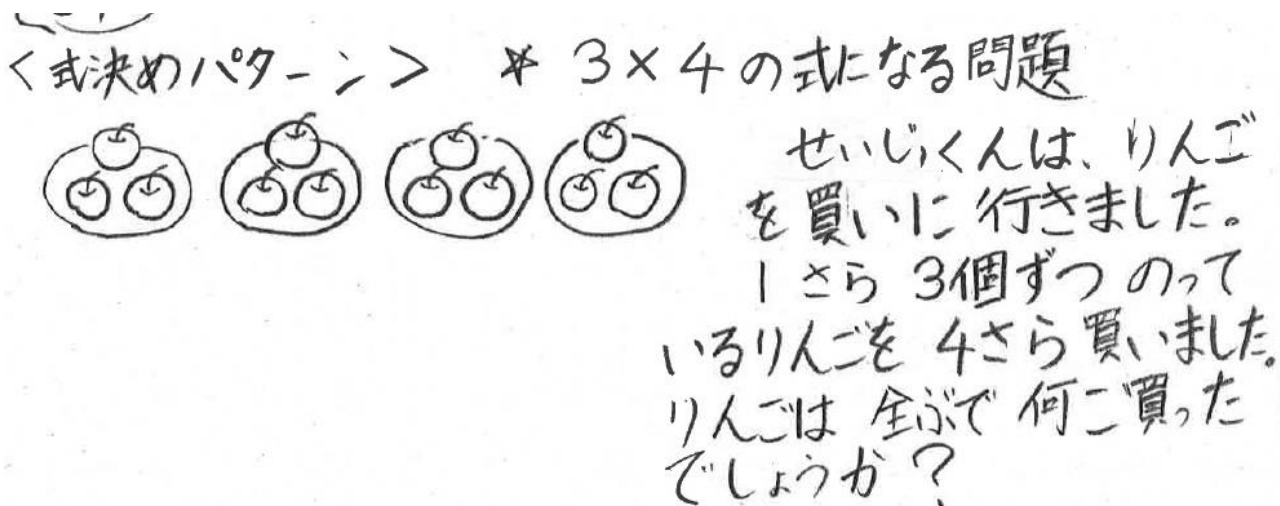 <式決めパターン> * 3×4の式になる問題
せいじくんは、りんご
を買いに行きました。
1さら 3個ずつ のって
いるりんごを 4さら買いました。
りんごは 全ぶで 何こ買った
でしょうか?